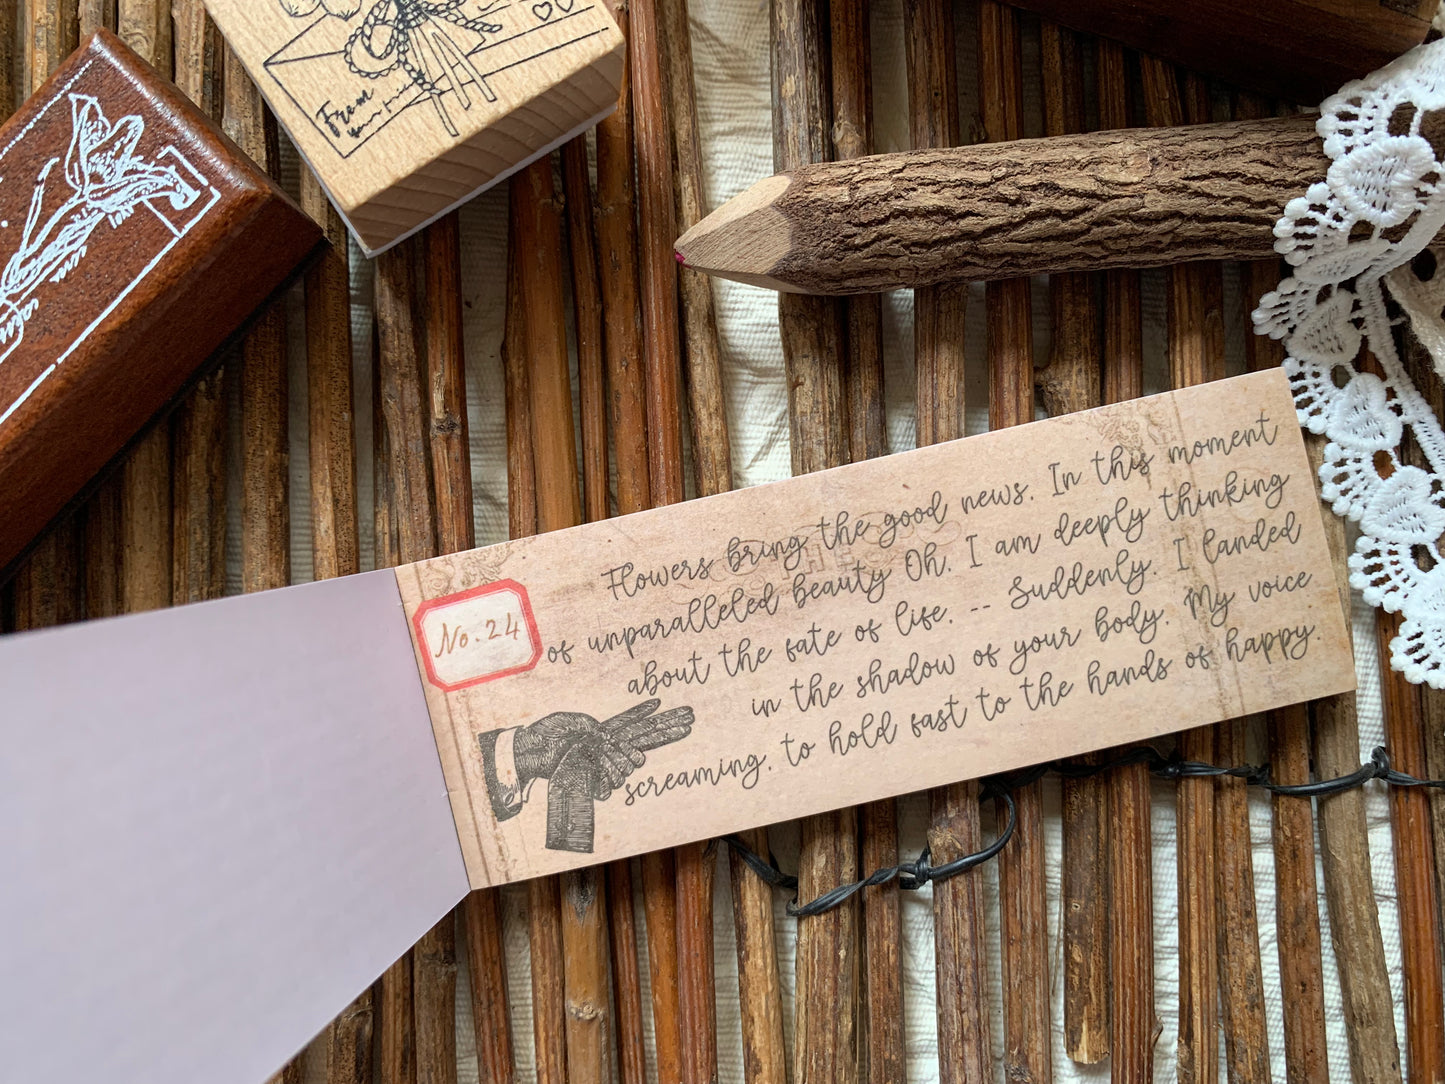 From
No. 24
Flowers bring the good news. In this moment
of unparalleled beauty Oh. I am deeply thinking
about the fate of life. -- Suddenly. I landed
in the shadow of your body. My voice
screaming. to hold fast to the hands of happy.